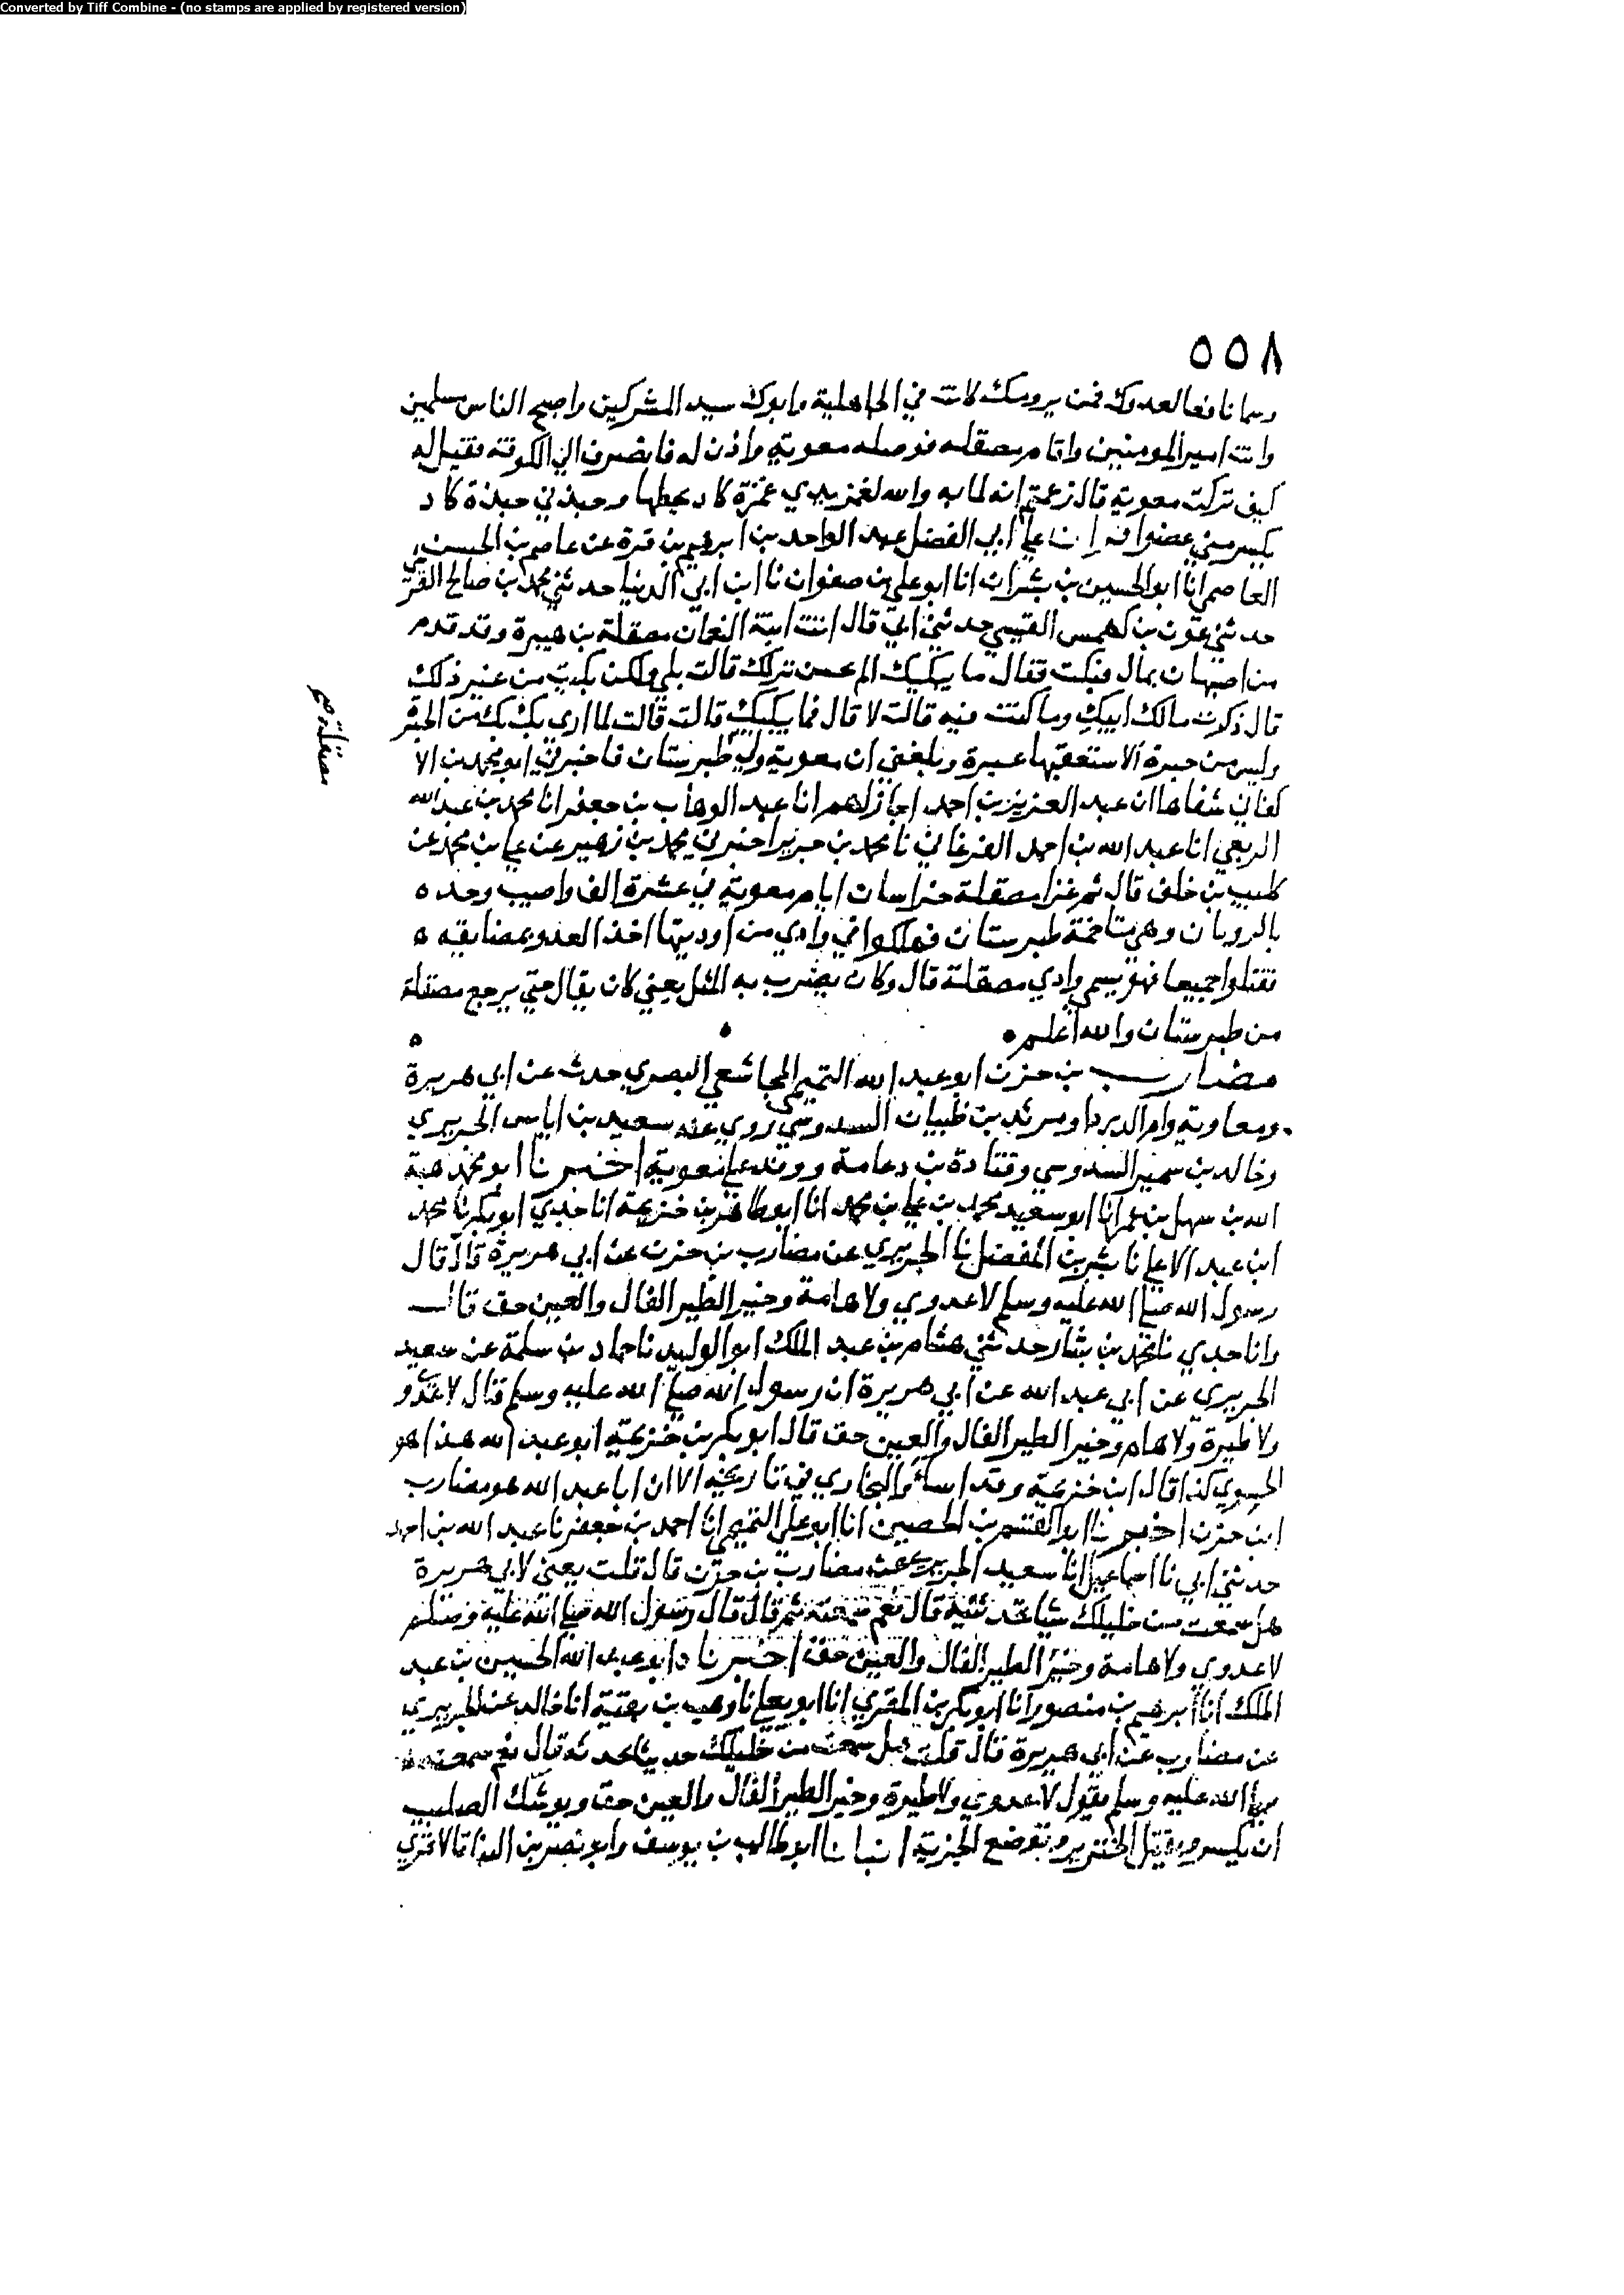 Converted by Tiff Combine - (no stamps are applied by registered version)
٥٥٨
وسما ناقعا لعدوك فمن يرومك كانت في الجاهلية وابوك سيد المشركين واصبح الناس مسلمين
وانت امير المومنين واقام مصقله فوصله معوية واذن له فانصرف الي الكوفة فقيل له
كيف تركت معوية قال زعمتم انه لما به والله لغمز يدي غمزة كاد يحطها وجبذني جبذة كاد
يكسر مني عضوا علي ابي الفضل عبد الواحد بن ابرهيم بن قرة عن عاصم بن الحسن
العاصمي انا ابو الحسين بن بشران انا ابو علي بن صفوان نا ابن ابي الدنيا حدثني محمد بن صالح القرشي
حدثني عون بن كهمس القيسي حدثني ابي قال اتت ابنة النعمان مصقلة بن هبيرة وقد قدم
من اصبهان بمال فبكت فقال ما يبكيك الم نزلك قالت بلي ولكن بكيت من غير ذلك
قال ذكرت مالك ابيك وما كنت فيه قالت لا قال فما يبكيك قالت قالت لما اري بك من الحبرة
وليس من حبرة الا ستعقبها عبرة وبلغني ان معوية ولي طبرستان فاخبرني ابو محمد بن الا
كفاني شفاها ان عبد العزيز بن احمد اجاز لهم انا عبد الوهاب بن جعفر انا محمد بن عبد الله
الربعي انا عبد الله بن احمد الفرغاني نا محمد بن جرير اخبرني محمد بن زهير عن علي بن محمد عن
كليب بن خلف قال ثم غزا مصقلة خراسان ايام معوية في عشرة الف واصيب وجنده
بالرويان وهي متاخمة طبرستان فهلكوا في وادي من اوديتها اخذ العدو بمضايقه
فقتلوا جميعا فهو يسمي وادي مصقلة قال وكان يضرب به المثل يعني كان يقال حتي يرجع مصقلة
من طبرستان والله اعلم
مصقلة صح
مضارب بن حزن ابو عبد الله التميمي المجاشعي البصري حدث عن ابي هريرة
ومعاوية وام الدردا ومرثد بن ظبيان السدوسي روي عنه سعيد بن اياس الجريري
وخالد بن سمير السدوسي وقتادة بن دعامة ووفد علي معوية اخبرنا ابو محمد هبة
الله بن سهل بن عمر انا ابو سعيد محمد بن علي بن محمد انا ابو طاهر بن خزيمة انا جدي ابو بكر نا محمد
ابن عبد الاعلي نا بشر بن المفضل نا الجريري عن مضارب بن حزن عن ابي هريرة قال قال
رسول الله صلي الله عليه وسلم لا عدوي ولا هامة وخير الطير الفال والعين حق قال
وانا جدي نا محمد بن بشار حدثني هشام بن عبد الملك ابو الوليد نا حماد بن سلمة عن سعيد
الجريري عن ابي عبد الله عن ابي هريرة ان رسول الله صلي الله عليه وسلم قال لا عدوي
ولا طيرة ولا هام وخير الطير الفال والعين حق قال ابو بكر بن خزيمة ابو عبد الله هذا هو
كذا قال ابن خزيمة وقد والبخاري في تاريخه الا ان ابا عبد الله هو مضارب
ابن حزن اخبرنا ابو القسم بن الحصين انا ابو علي التميمي انا احمد بن جعفر نا عبد الله بن احمد
حدثني ابي نا اسماعيل انا سعيد الجريري عن مضارب بن حزن قال قلت يعني لابي هريرة
هل سمعت من خليلك شيا تحدثنيه قال نعم سمعته ثم قال قال رسول الله صلي الله عليه وسلم
لا عدوي ولا هامة وخير الطير الفال والعين حق اخبرنا ابو عبد الله الحسين بن عبد
الملك انا ابرهيم بن منصور انا ابو بكر بن المقري انا ابو يعلي نا وهب بن بقية انا خالد عن الجريري
عن مضارب عن ابي هريرة قال قلت هل سمعت من خليلك حديثا تحدثه قال نعم سمعته
صلي الله عليه وسلم يقول لا عدوي ولا طيرة وخير الطير الفال والعين حق ويوشك الصليب
ان يكسر ويقتل الخنزير وتوضع الجزية انبانا ابو طالب بن يوسف وابو نصر بن البنا قالا قري